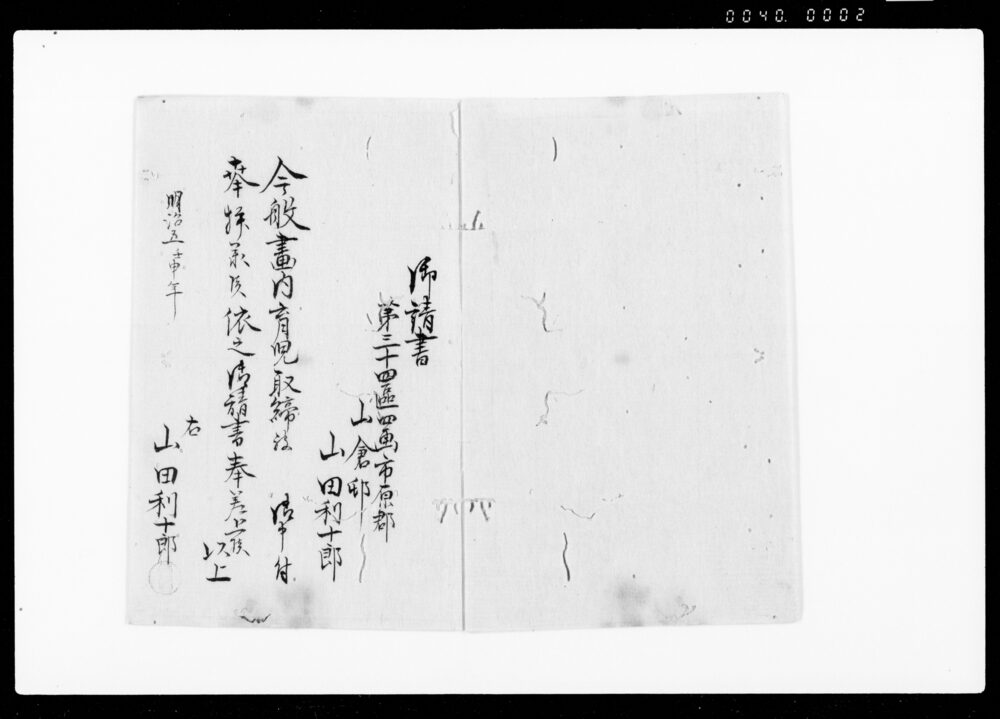 0040. 0002
御請書
第三十四區四画市原郡
山倉邨
山田利十郎
今般畫内育児取締 御申付
奉拝承候依之御請書奉差上候
以上
明治五壬申年
右
山田利十郎